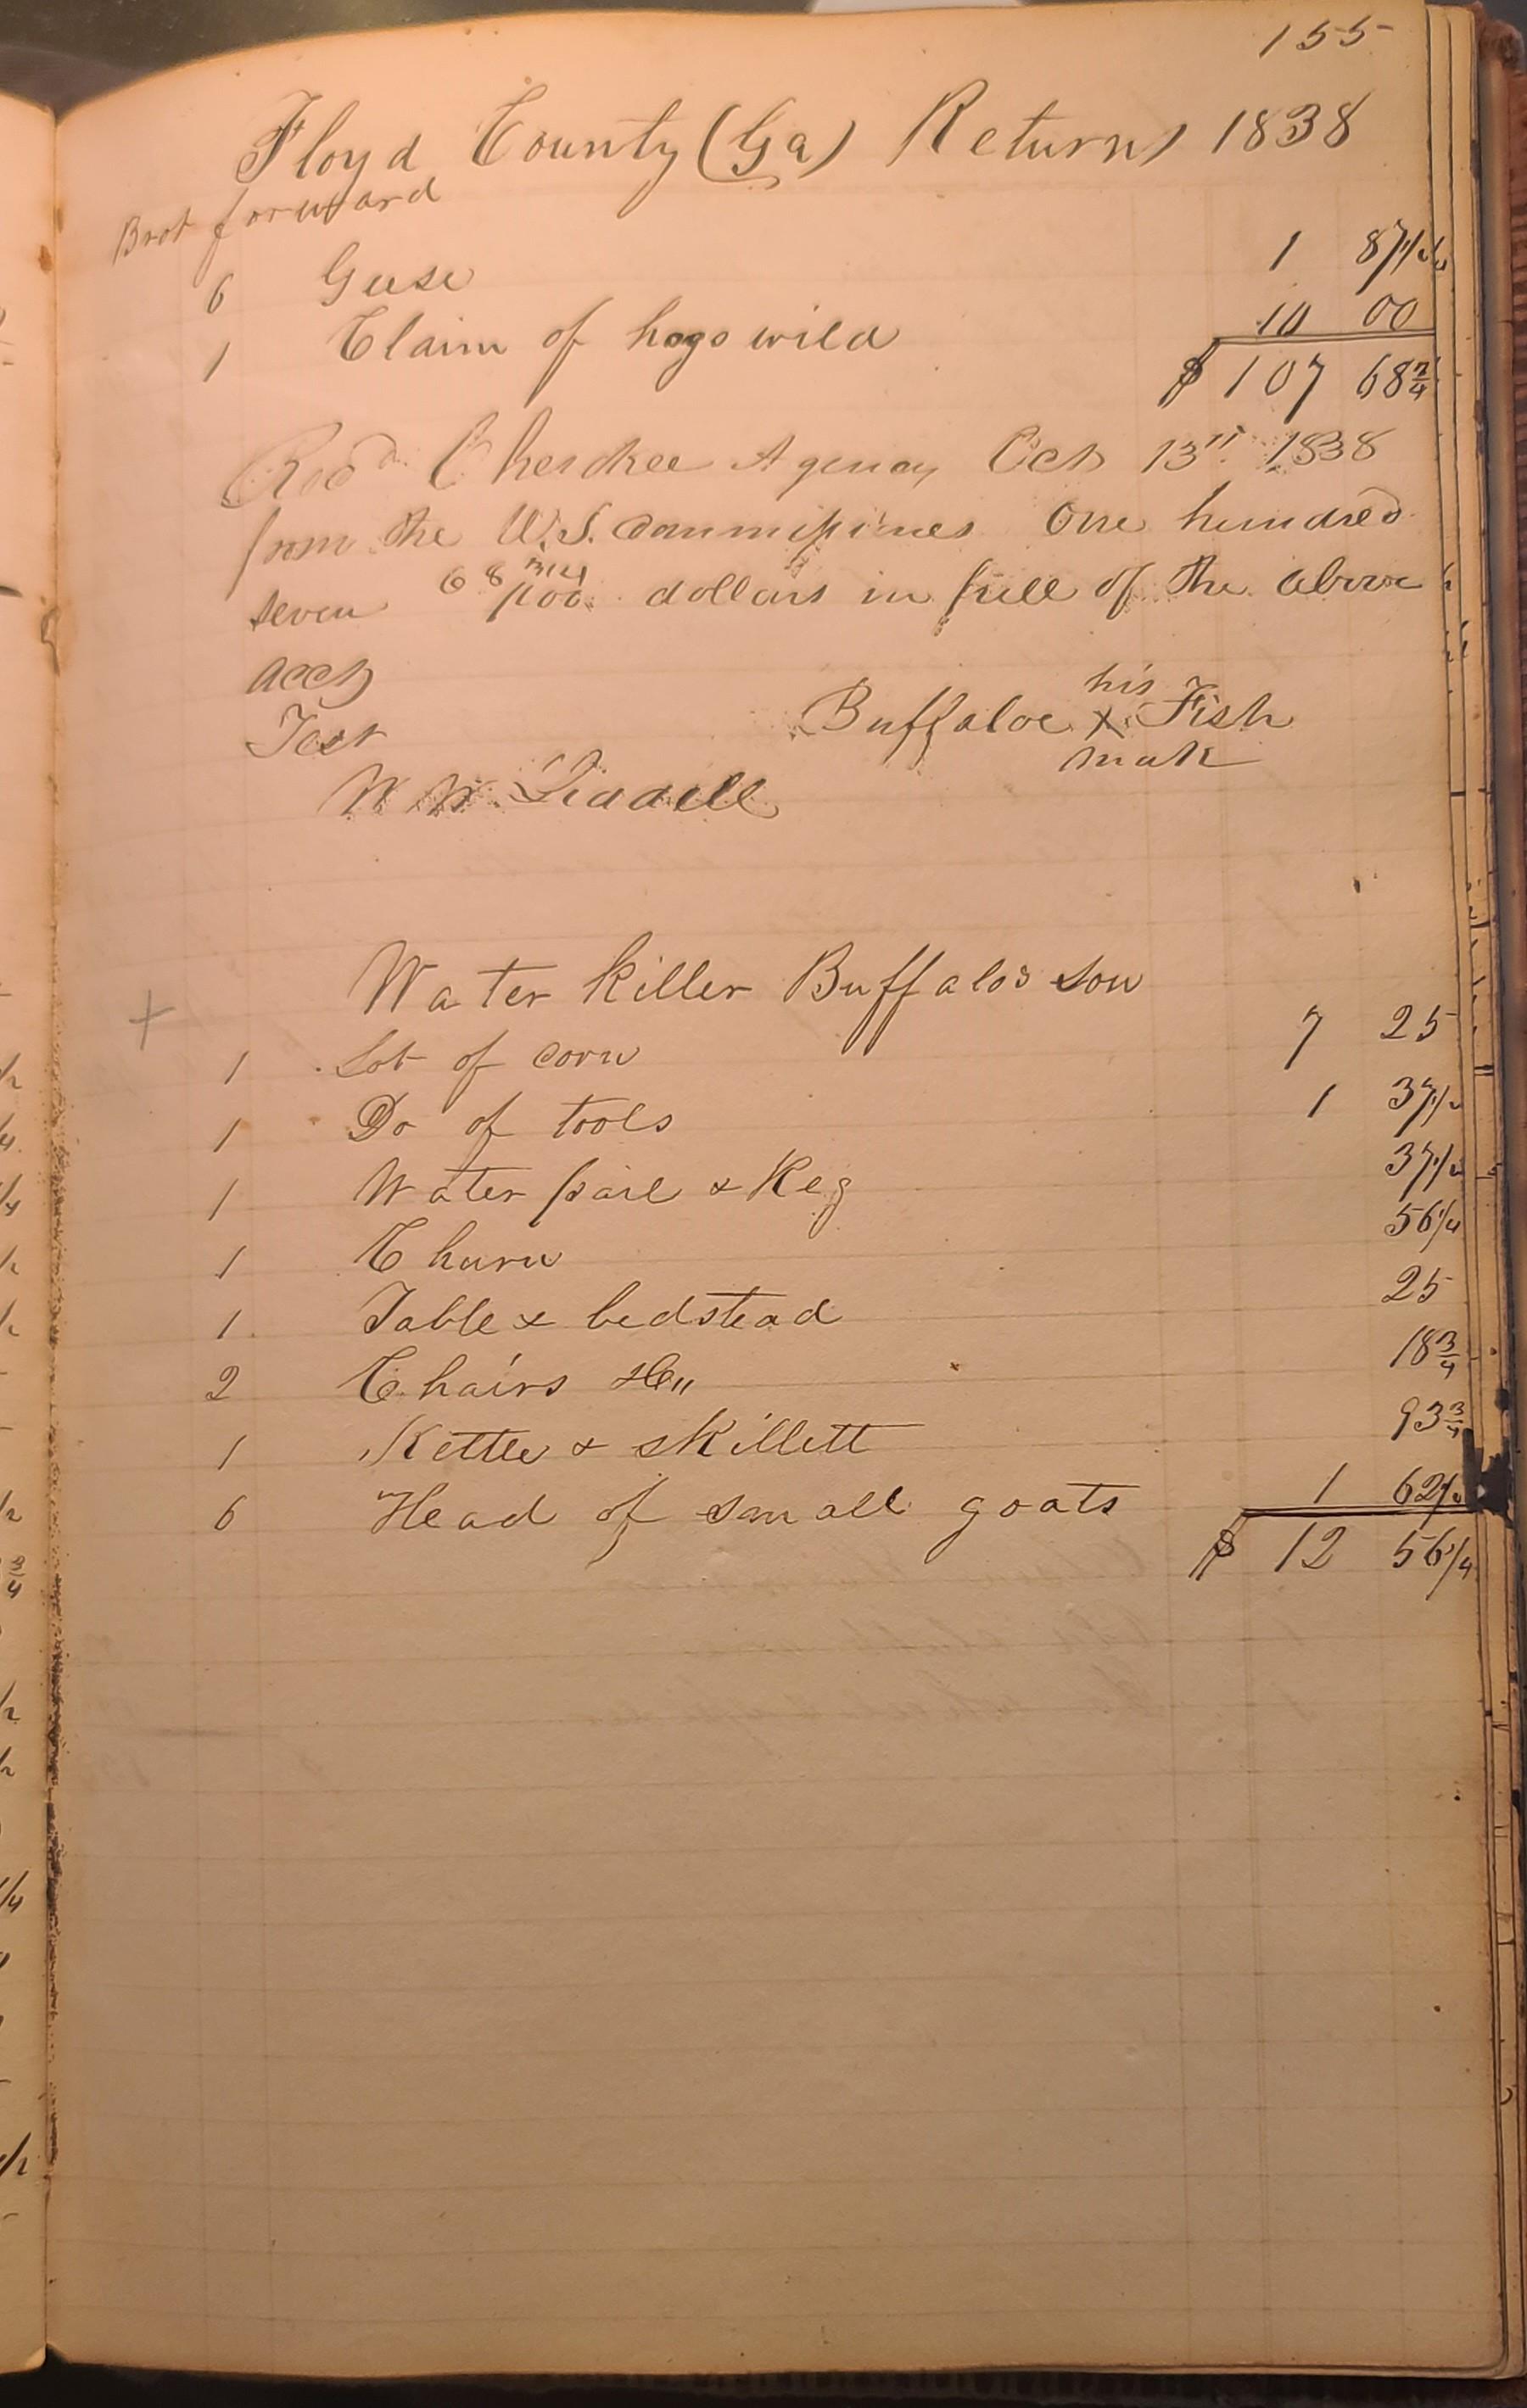 155
Floyd County (Ga) Returns 1838
Brot forward
6 Geese 1 87 1/2
1 Claim of hogs wild 10 00
$ 107 68 3/4
Recd Cherokee Agency Oct 13" 1838
from the U.S. Commissioners One hundred
seven 68 3/4/100 dollars in full of the above
acct
Test Buffaloe his X mark Fish
W W. Liddell
Water Killer Buffalo's son
1 Lot of corn 7 25
1 Do of tools 1 37 1/2
1 Water pail & Keg 37 1/2
1 Churn 56 1/4
1 Table & bedstead 25
2 Chairs &c" 18 3/4
1 Kettle & skillett 93 3/4
6 Head of small goats 1 62 1/2
$ 12 56 1/4